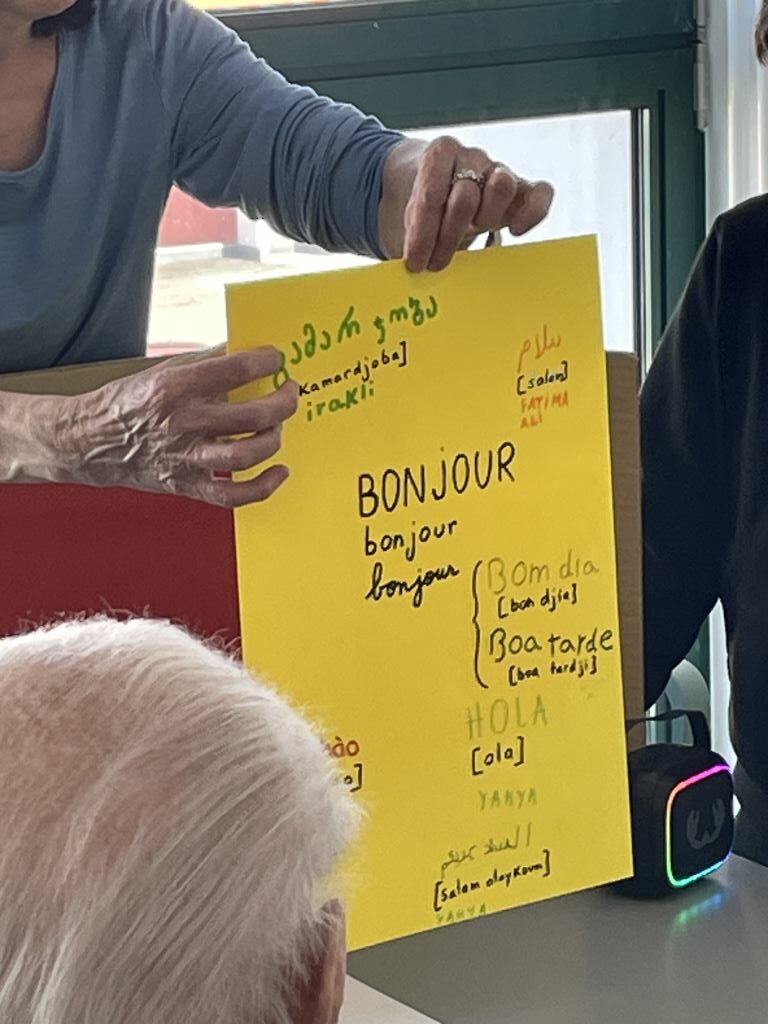 გამარჯობა
[Kamardjoba]
irakli
سلام
[salam]
FATIMA
ALI
BONJOUR
bonjour
bonjour
Bom dia
[bon djia]
Boa tarde
[boa tardji]
HOLA
[ola]
YAHYA
[Salam alaykoum]
YAHYA